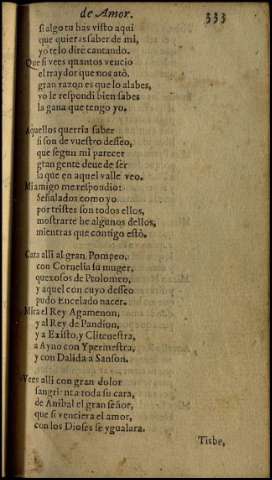 de Amor.
333
si algo tu has visto aqui
que quieras saber de mi,
yo te lo dirè cantando.
Que si vees quantos vencio
el traydor que nos atò,
gran razon es que lo alabes,
yo le respondi bien sabes
la gana que tengo yo.
Aquellos querria saber
si son de vuestro desseo,
que segun mi parecer
gran gente deue de ser
la que en aquel valle veo.
Mi amigo me respòdio:
Señalados como yo
por tristes son todos ellos,
mostrarte he algunos dellos,
mientras que contigo estò.
Cata alli al gran Pompeo,
con Cornelia su muger,
quexosos de Ptolomeo,
y aquel con cuyo desseo
pudo Encelado nacer.
Mira el Rey Agamenon,
y al Rey de Pandion,
y a Existo, y Clitenestra,
a Ayno con Ypermestra,
y con Dalida a Sanson.
Vees alli con gran dolor
sangrienta toda su cara,
de Anibal el gran señor,
que si venciera el amor,
con los Dioses se ygualara.
Tisbe,